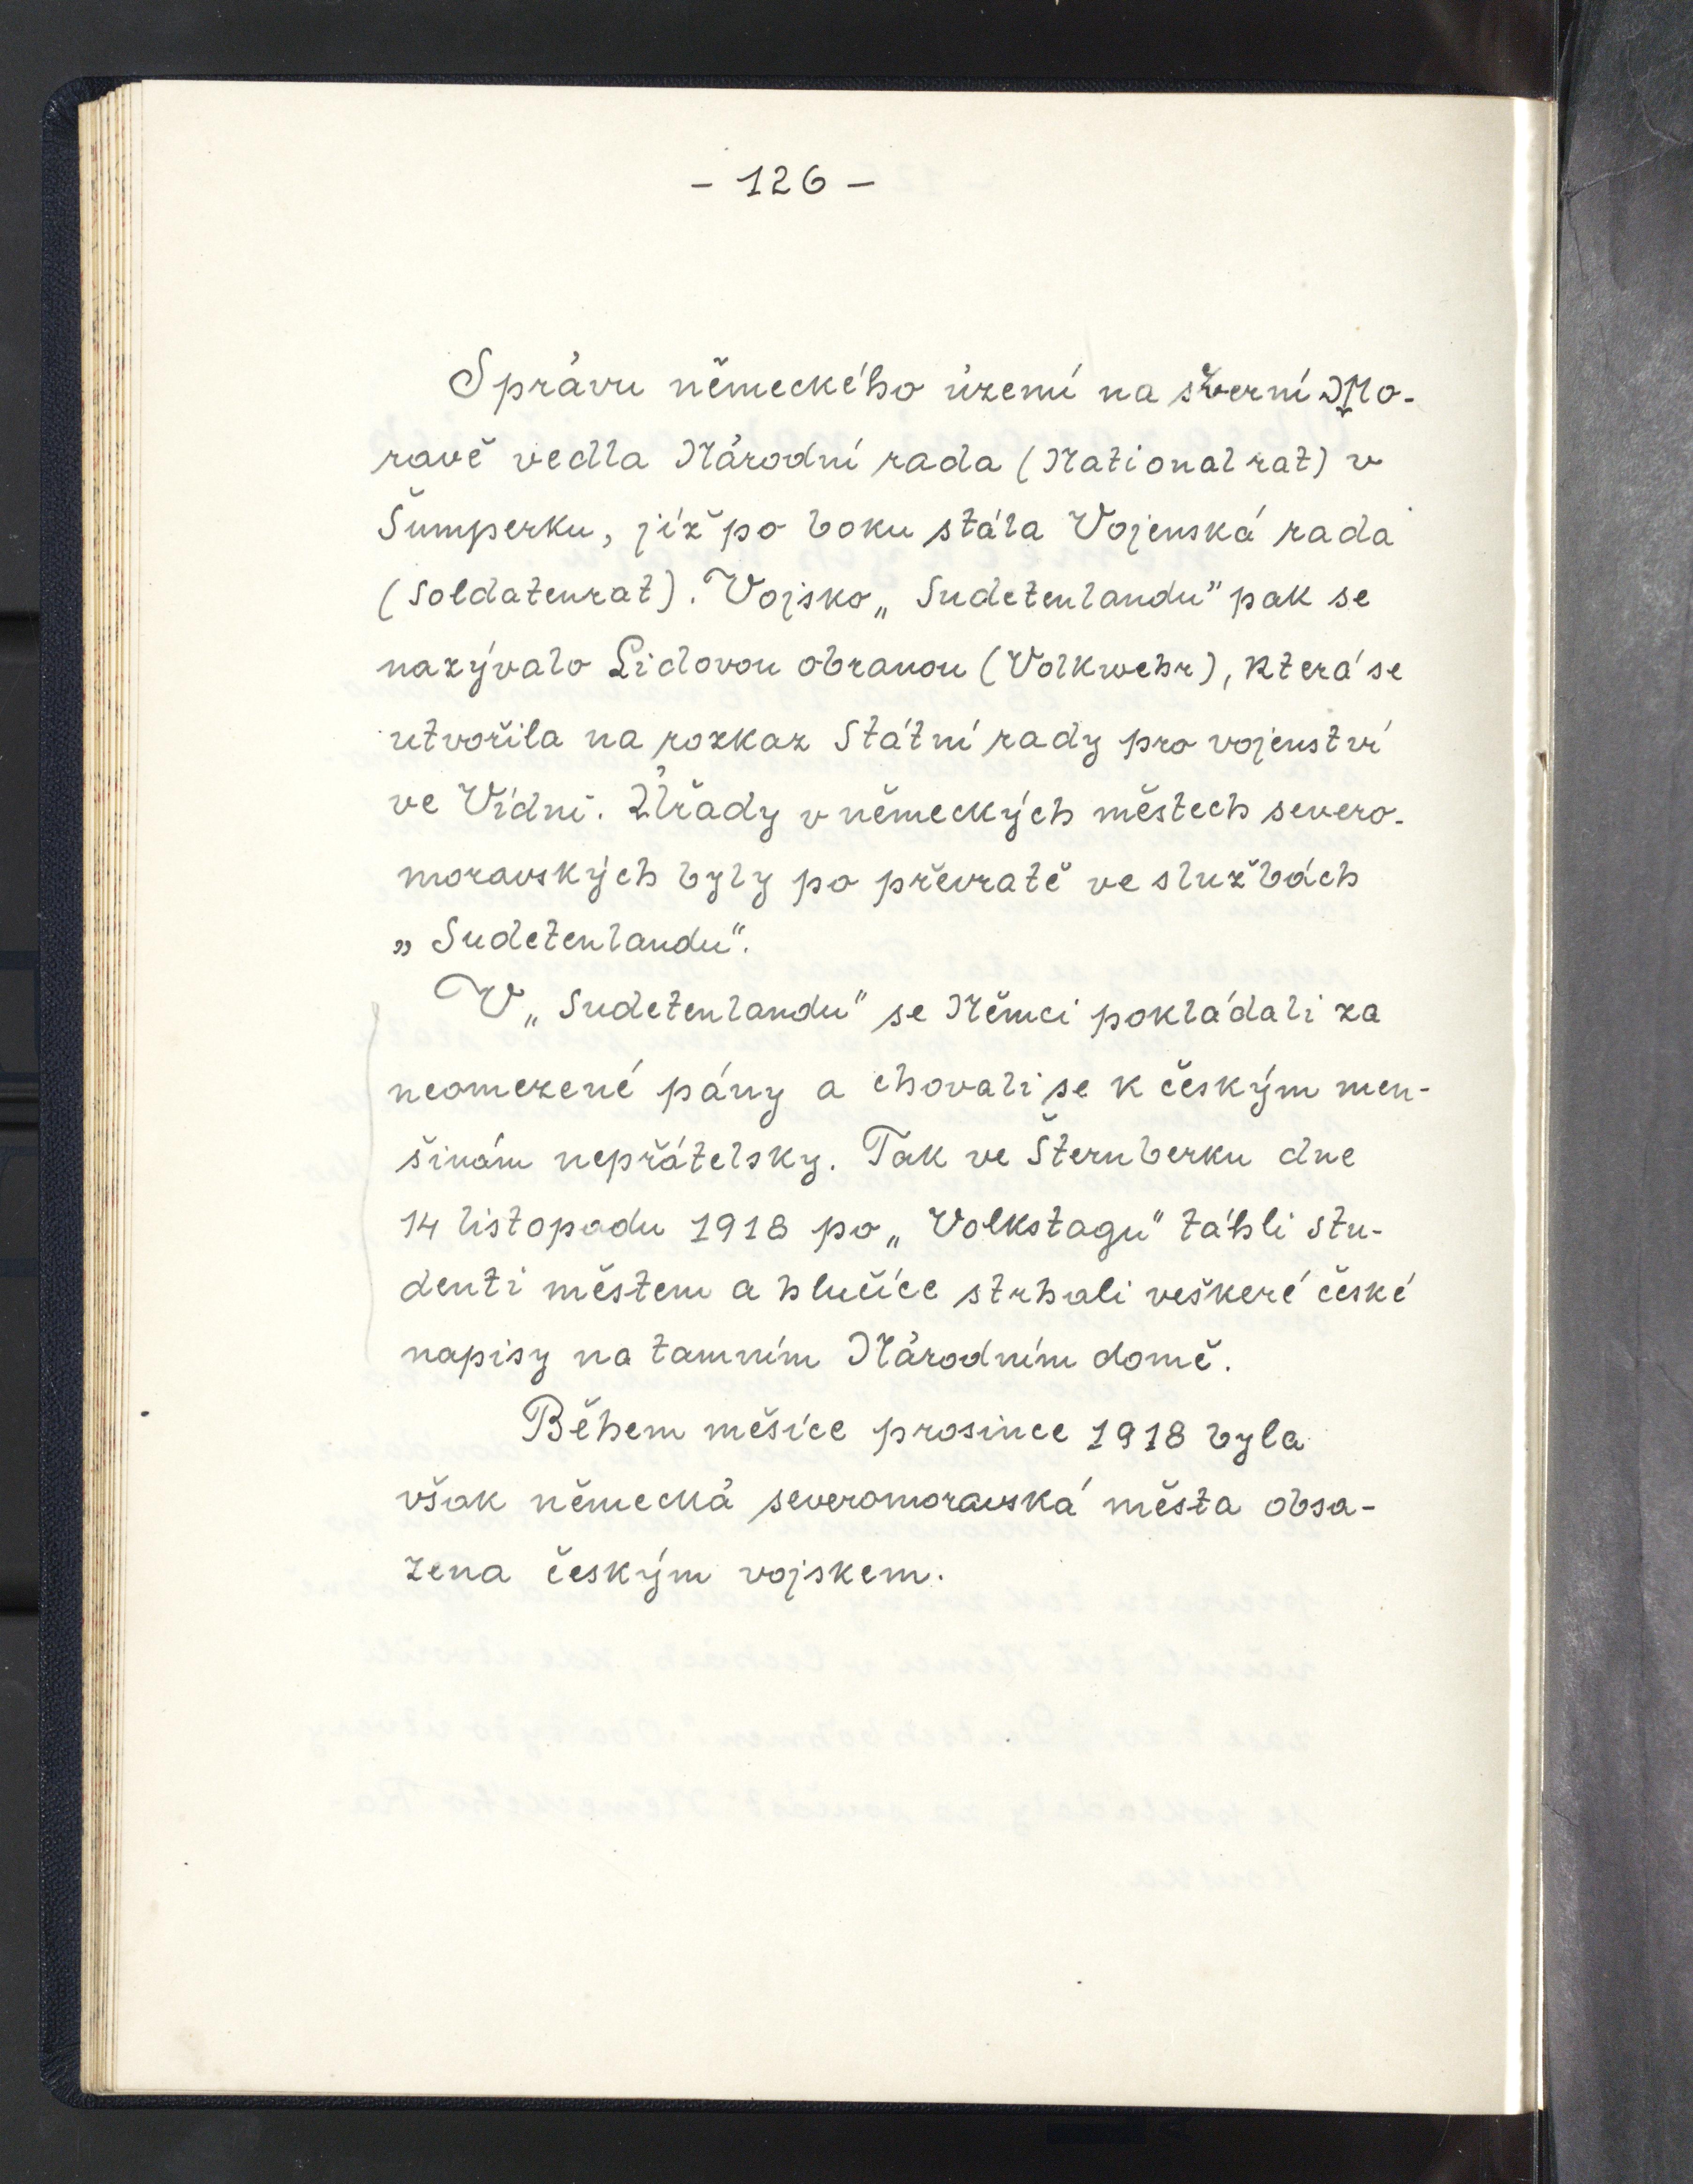 - 126 -
Správu německého území na severní Mo-
ravě vedla Národní rada (Nationalrat) v
Šumperku, jíž po boku stála Vojenská rada
(Soldatenrat). Vojsko „Sudetenlandu" pak se
nazývalo Lidovou obranou (Volkwehr), která se
utvořila na rozkaz Státní rady pro vojenství
ve Vídni. Úřady v německých městech severo-
moravských byly po převratě ve službách
„Sudetenlandu".
V „Sudetenlandu" se Němci pokládali za
neomezené pány a chovali se k českým men-
šinám nepřátelsky. Tak ve Šternberku dne
14 listopadu 1918 po „Volkstagu" táhli stu-
denti městem a hlučíce strhali veškeré české
napisy na tamním Národním domě.
Během měsíce prosince 1918 byla
však německá severomoravská města obsa-
zena českým vojskem.